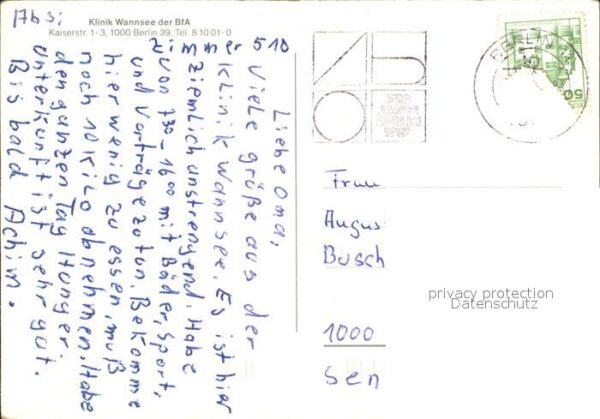 Abs:
Klinik Wannsee der BfA
Kaiserstr. 1-3, 1000 Berlin 39, Tel. 8 10 01-0
Zi er 510
Liebe Oma,
viele größe aus der
Klinik Wannsee. Es ist hier
ziemlich anstrengend. Habe
von 7³⁰-16⁰⁰ mit Bäder, Sport,
und Vorträge zutun. Bekomme
hier wenig zu essen, muß
noch 10 kilo abnehmen. Habe
den ganzen Tag Hunger.
Unterkunft ist sehr gut.
Bis bald Achim.
750
BERLIN
1987
BERLIN
50
Frau
Augus
Busch
1000
sen
privacy protection
Datenschutz